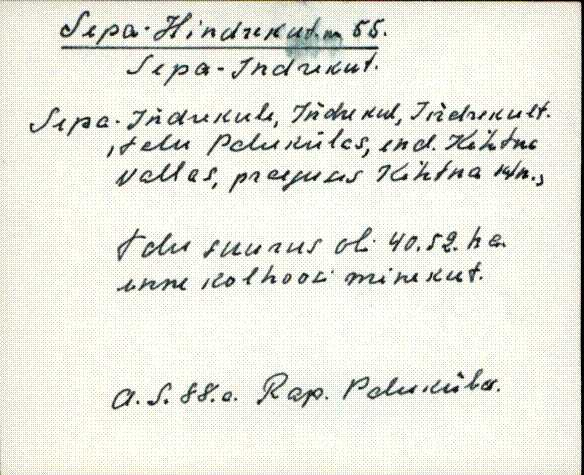 Sepa-Hindrekut. m 55.
Sepa-Indrekut.
Sepa-Ińdrekule, Ińdrekul, Ińdrekult.
, talu Palukülas, end. Kehtna
vallas, praegucs Kehtna k/n.,
talu suurus oli 40.52. ha
enne kolhoosi minekut.
A. S. 88. a. Rap. Paluküla.